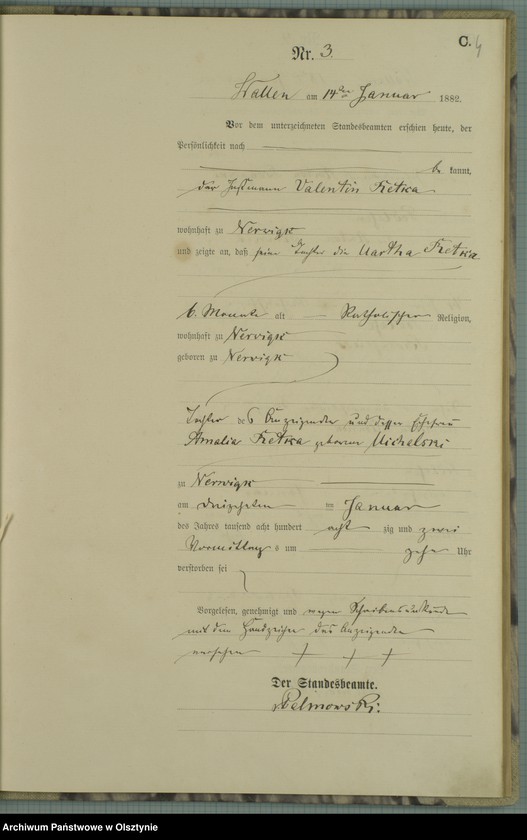 C. 4
Nr. 3.
Wallen am 14ten Januar 1882.
Vor dem unterzeichneten Standesbeamten erschien heute, der
Persönlichkeit nach
be kannt,
der Valentin Fietka
wohnhaft zu Nerwigk
und zeigte an, daß seine Tochter die Martha Fietka
6 Monate alt Katholischer Religion,
wohnhaft zu Nerwigk
geboren zu Nerwigk
Tochter des Anzeigenden und dessen Ehefrau
Amalia Fietka geborene Michelski
zu Nerwigk
am dreizehnten Januar
des Jahres tausend acht hundert acht zig und zwei
Vormittag s um zehn Uhr
verstorben sei
Vorgelesen, genehmigt und wegen Schreibensunkunde
mit dem Handzeichen des Anzeigenden
versehen + + +
Der Standesbeamte.
Archiwum Państwowe w Olsztynie